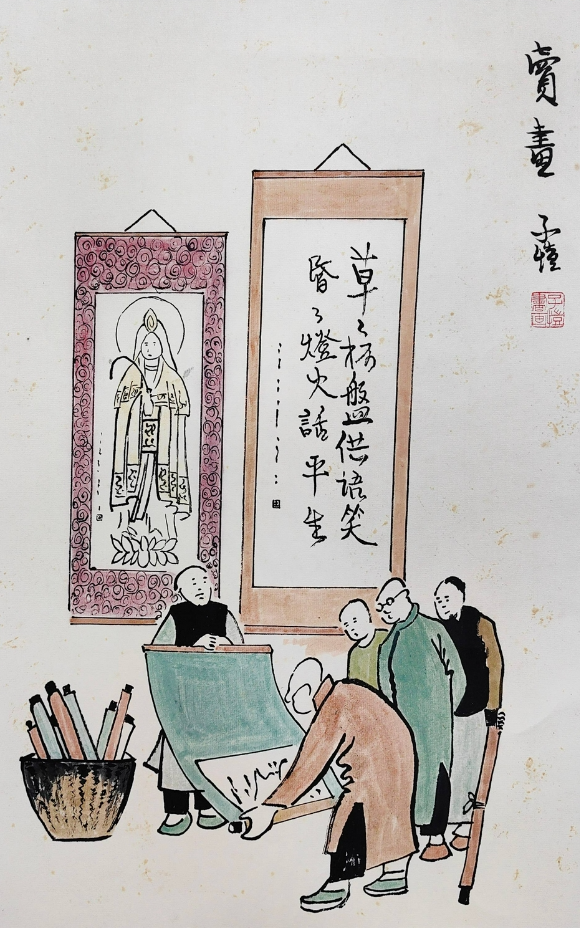 賣畫 子愷
子愷書画
草々杯盤供語笑
昏々燈火話平生